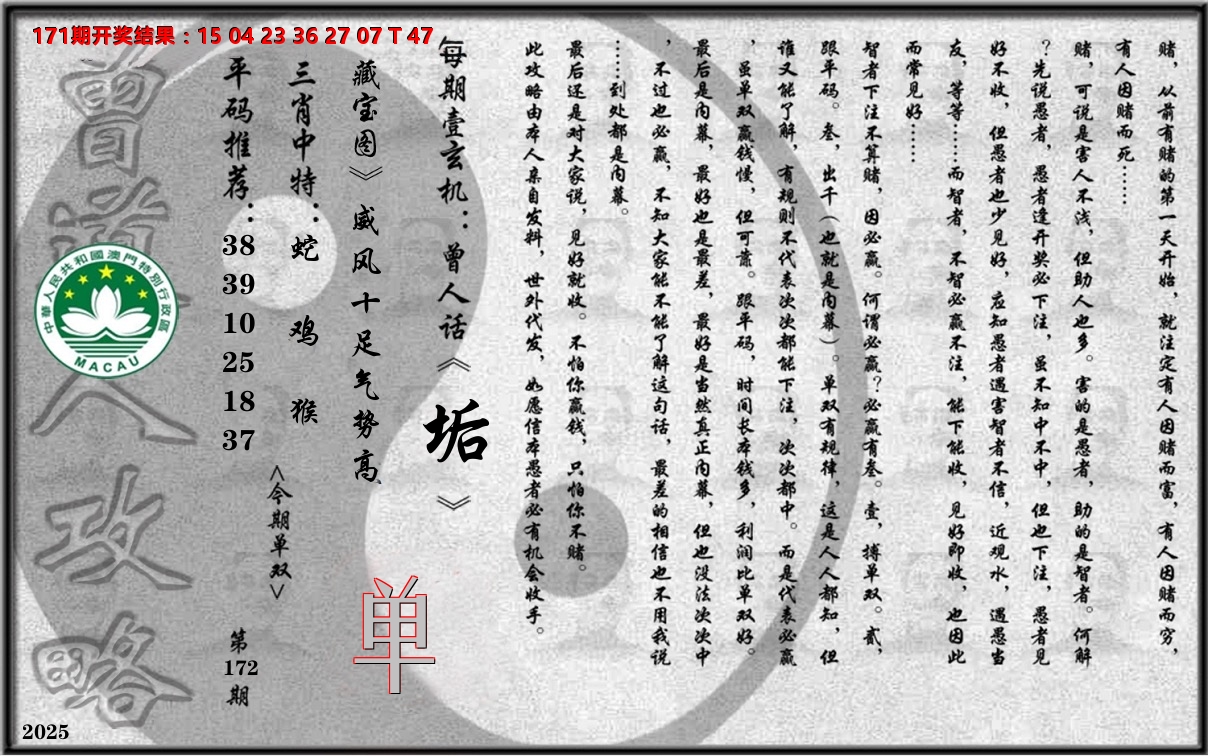 171期开奖结果：15 04 23 36 27 07 T 47
赌，从前有赌的第一天开始，就注定有人因赌而富，有人因赌而穷，
有人因赌而死……
赌，可说是害人不浅，但助人也多。害的是愚者，助的是智者。何解
？先说愚者，愚者逢开奖必下注，虽不知中不中，但也下注，愚者见
好不收，但愚者也少见好，应知愚者遇害智者不信，近观水，遇愚当
友，等等……而智者，不智必赢不注，能下能收，见好即收，也因此
而常见好……
智者下注不算赌，因必赢。何谓必赢？必赢有叁。壹，搏单双。贰，
跟平码。叁，出千（也就是内幕）。单双有规律，这是人人都知，但
谁又能了解，有规则不代表次次都能下注，次次都中。而是代表必赢
，虽单双赢钱慢，但可靠。跟平码，时间长本钱多，利润比单双好。
最后是内幕，最好也是最差，最好是当然真正内幕，但也没法次次中
，不过也必赢，不知大家能不能了解这句话，最差的相信也不用我说
……到处都是内幕。
最后还是对大家说，见好就收。不怕你赢钱，只怕你不赌。
此攻略由本人亲自发料，世外代发，如愿信本愚者必有机会收手。
每期壹玄机：曾人话《垢》
藏宝图》威风十足气势高
单
三肖中特：蛇 鸡 猴
<今期单双>
平码推荐：38 39 10 25 18 37
第172期
曾道人攻略
中華人民共和國澳門特別行政區
MACAU
2025